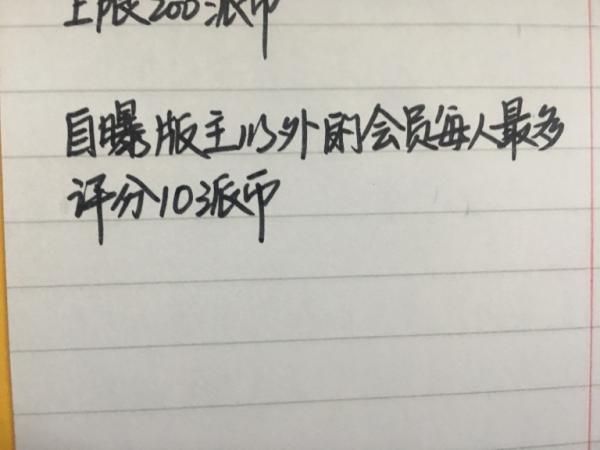 上限200派币
自曝版主以外的会员每人最多
评分10派币